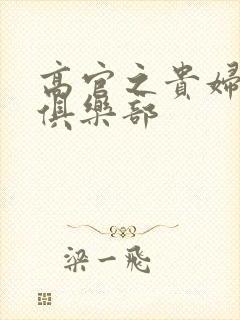 高官之貴婦
俱樂部
梁一飛